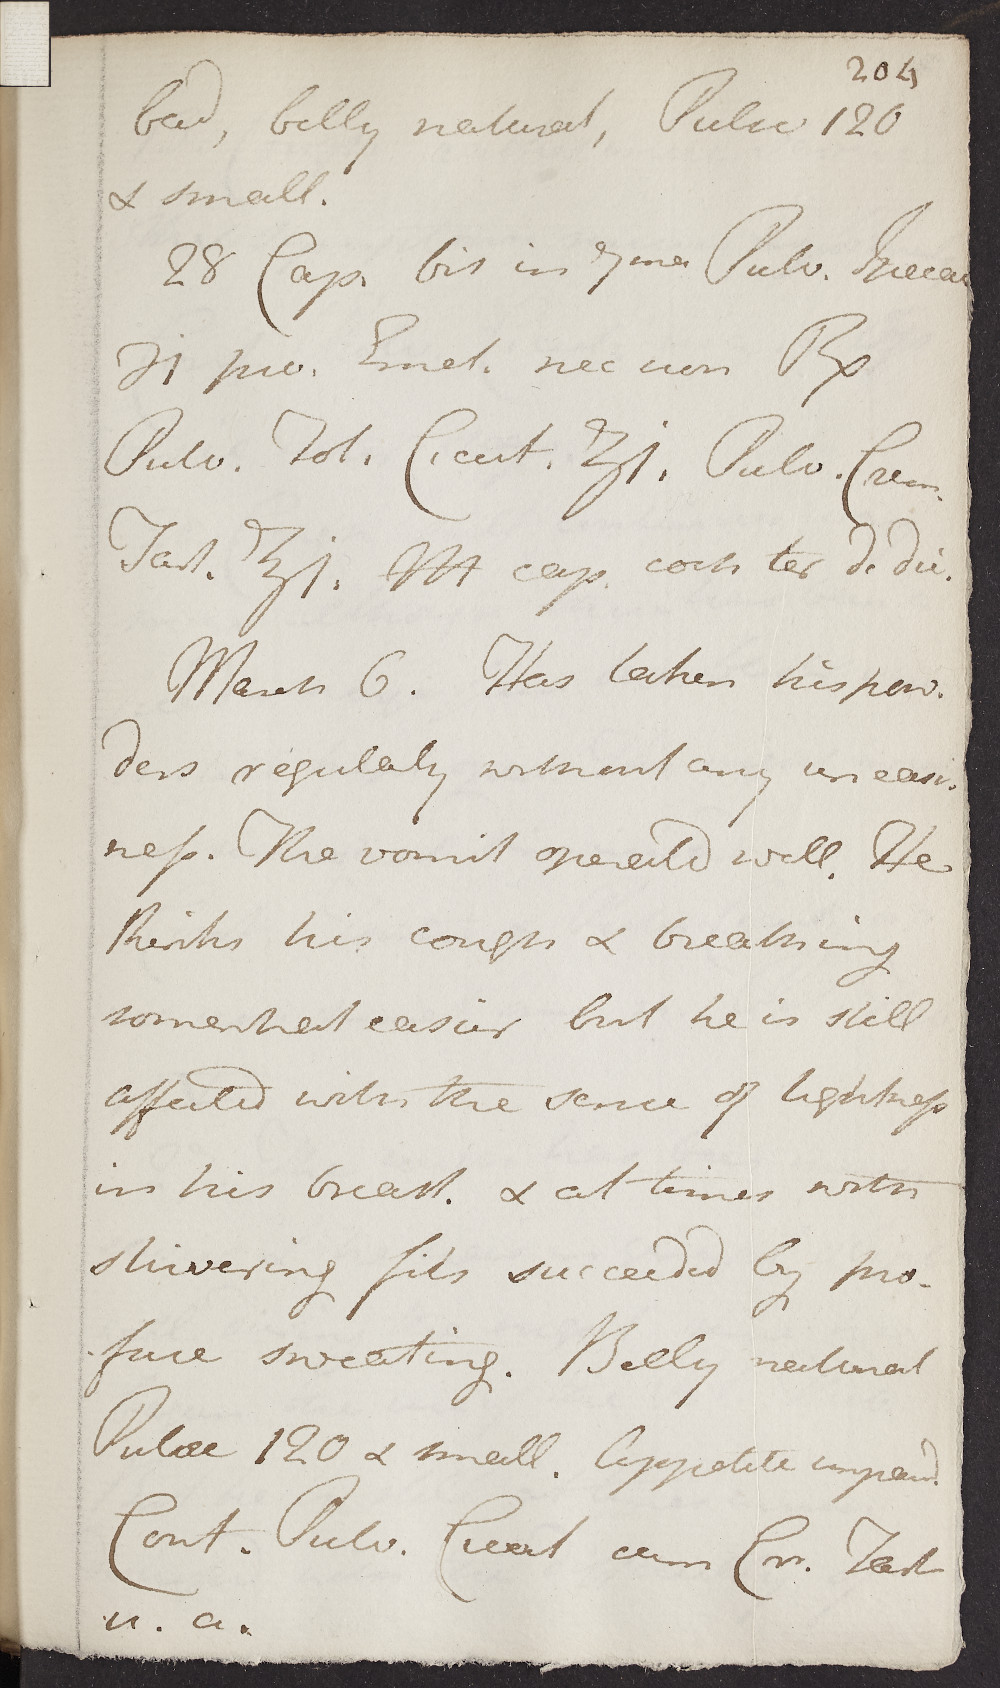 204
bad, belly natural, Pulse 120
& small.
28 Cap. bis in 7mna Pulv. Ipecac
℈j pro. Emet. nec non Rx
Pulv. Fol. Cicut. ʒj. Pulv. Crem.
Tart. ʒj. M cap. coch ter d. die.
March 6. Has taken his pow-
ders regulaly without any uneasi-
ness. The vomit operated well. He
thinks his cough & breathing
somewhat easier but he is still
affected with the sence of tightness
in his breast. & at times with
shivering fits succeeded by pro-
fuse sweating. Belly natural
Pulse 120 & small. Appetite impaird.
Cont. Pulv. Cicut cum Cr. Tart
u. a.